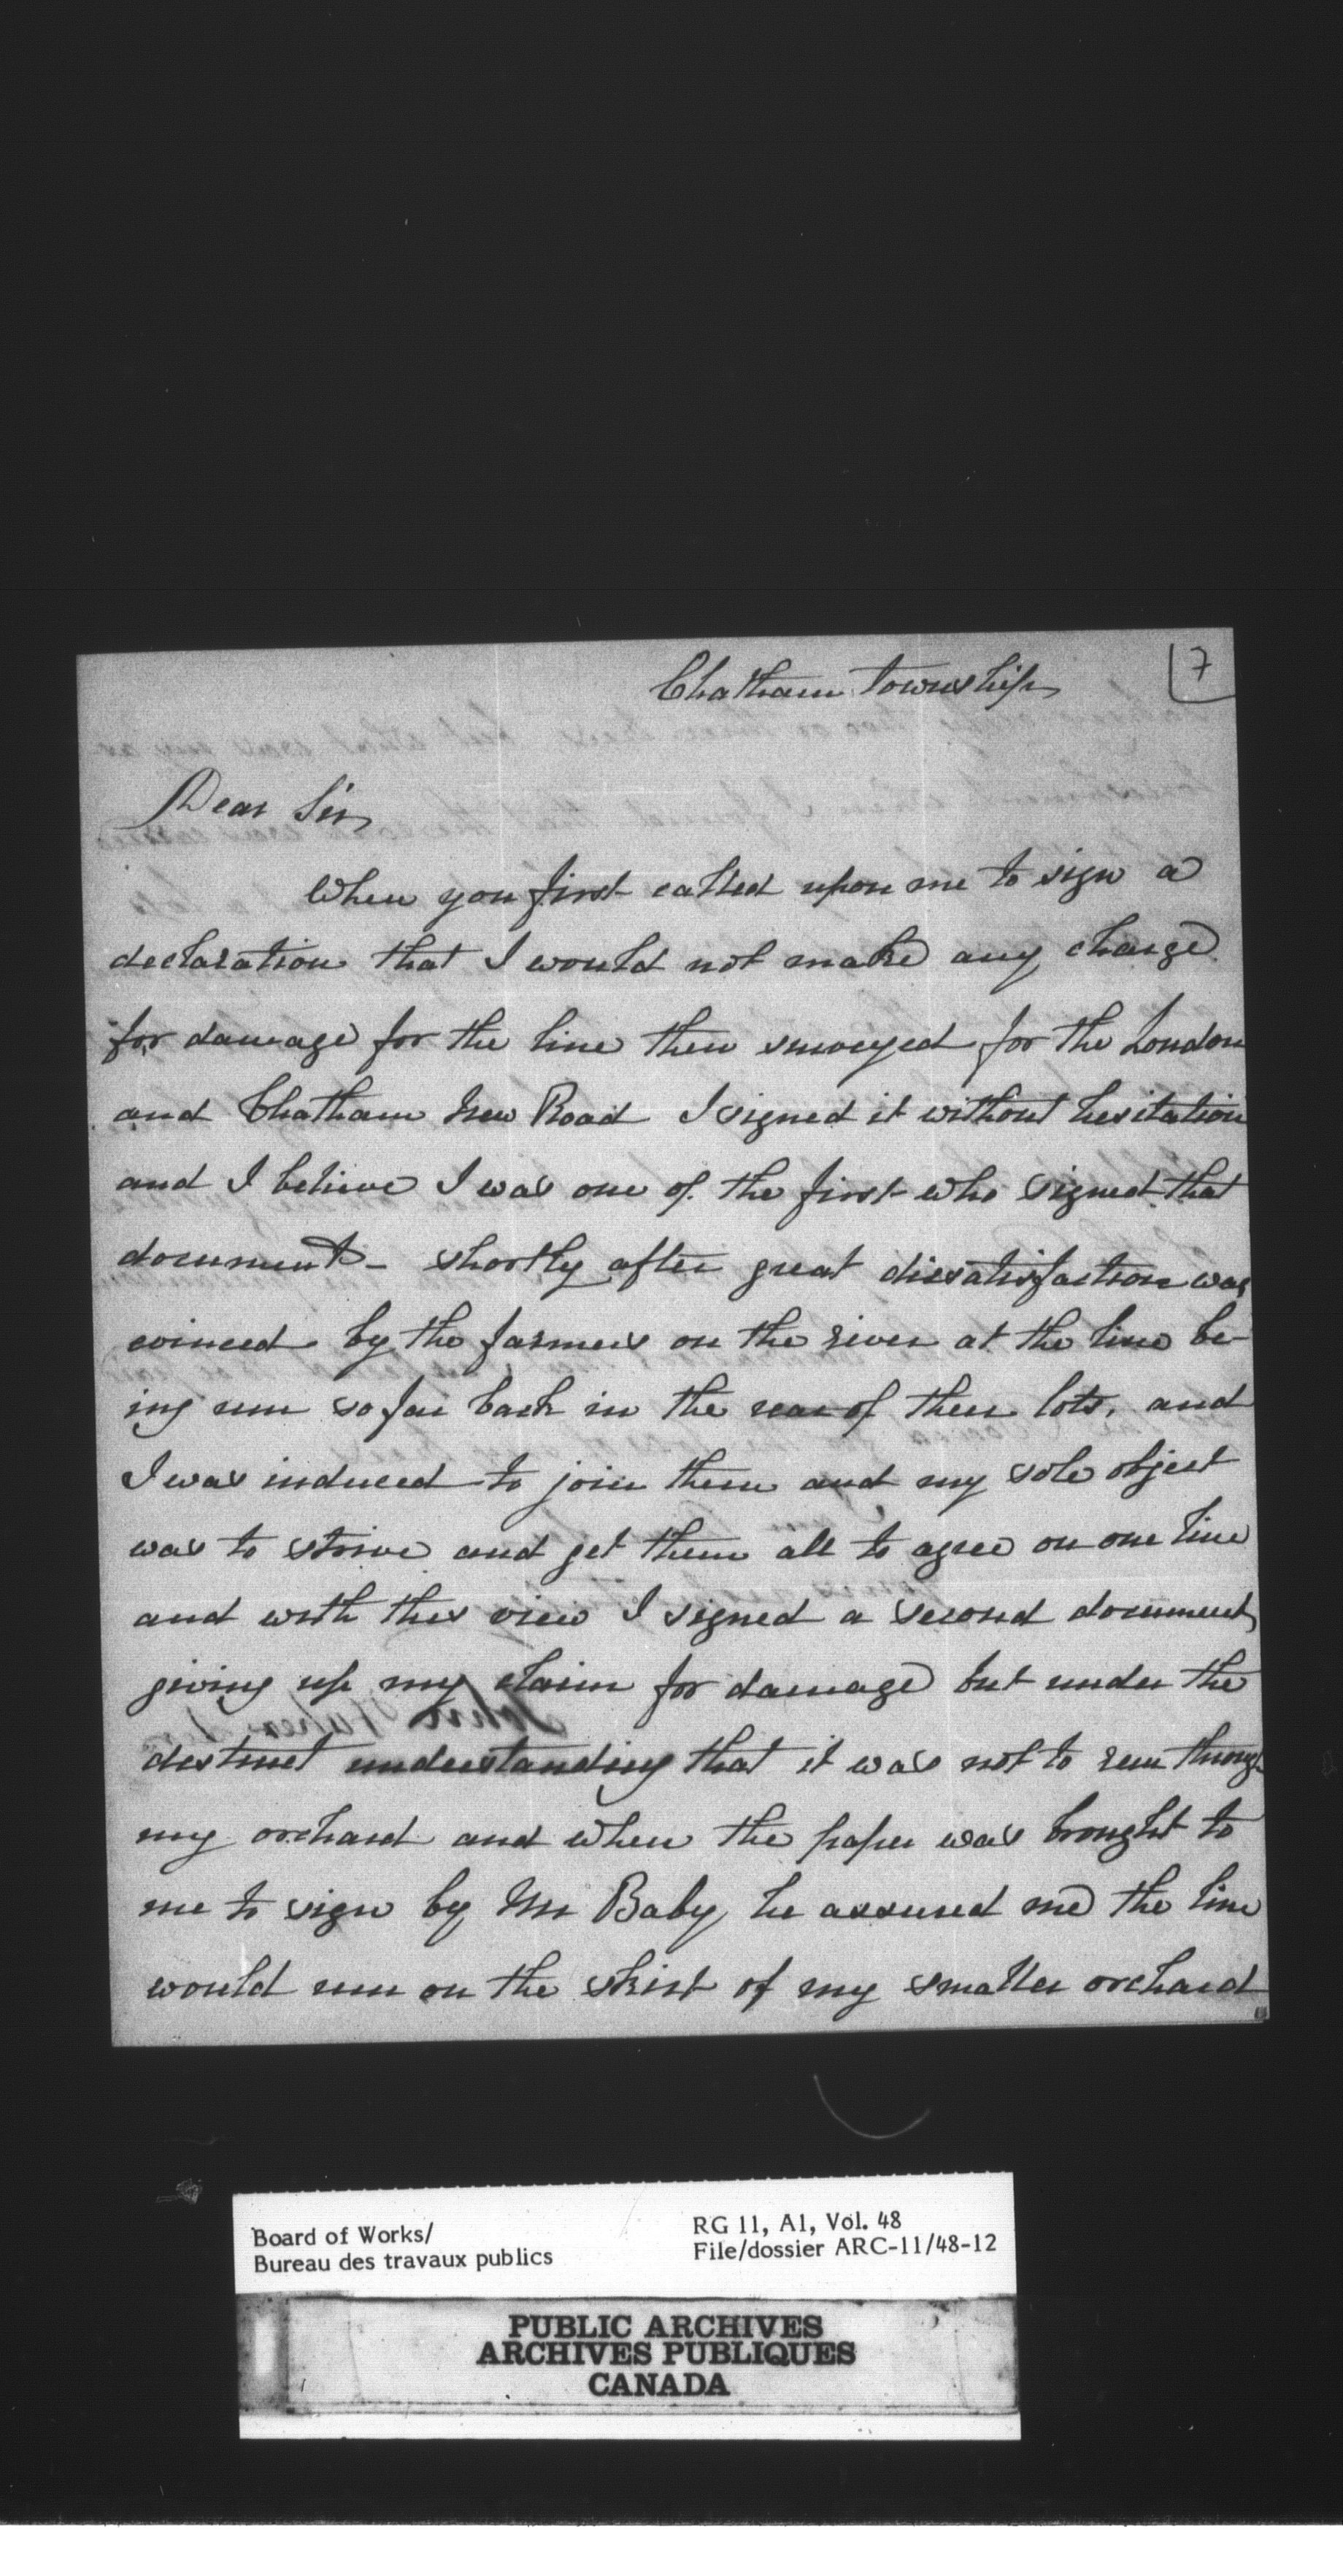 7
Chatham Township
Dear Sir,
When you first called upon me to sign a
declaration that I would not make any charge
for damage for the line then surveyed for the London
and Chatham New Road I signed it without hesitation
and I believe I was one of the first who signed that
document - shortly after great dissatisfaction was
evinced by the farmers on the river at the line be-
ing run so far back in the rear of their lots, and
I was induced to join them and my sole object
was to strive and get them all to agree on one line
and with this view I signed a second document,
giving up my claim for damage but under the
distinct understanding that it was not to run through
my orchard and when the paper was brought to
me to sign by Mr Baby, he assured me the line
would run on the skirt of my smaller orchard
Board of Works/
Bureau des travaux publics
RG 11, A1, Vol. 48
File/dossier ARC-11/48-12
PUBLIC ARCHIVES
ARCHIVES PUBLIQUES
CANADA